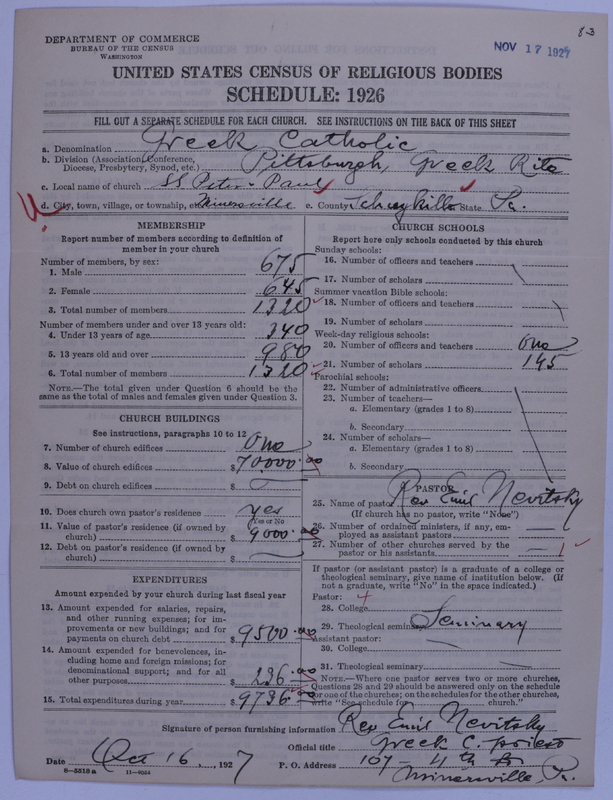 83
DEPARTMENT OF COMMERCE
BUREAU OF THE CENSUS
WASHINGTON
NOV 17 1927
UNITED STATES CENSUS OF RELIGIOUS BODIES
SCHEDULE: 1926
FILL OUT A SEPARATE SCHEDULE FOR EACH CHURCH. SEE INSTRUCTIONS ON THE BACK OF THIS SHEET
a. Denomination Greek Catholic
b. Division (Association, Conference, Diocese, Presbytery, Synod, etc.) Pittsburgh, Greek Rite
c. Local name of church SS Peter Paul
d. City, town, village, or township, etc. Minersville e. County Schuylkill State Pa.
MEMBERSHIP
Report number of members according to definition of
member in your church
Number of members, by sex:
1. Male 675
2. Female 645
3. Total number of members 1320
Number of members under and over 13 years old:
4. Under 13 years of age 340
5. 13 years old and over 980
6. Total number of members 1320
NOTE.—The total given under Question 6 should be the
same as the total of males and females given under Question 3.
CHURCH BUILDINGS
See instructions, paragraphs 10 to 12
7. Number of church edifices One
8. Value of church edifices $70000.00
9. Debt on church edifices $ —
10. Does church own pastor's residence yes
(Yes or No)
11. Value of pastor's residence (if owned by
church) $9000.00
12. Debt on pastor's residence (if owned by
church) $ —
EXPENDITURES
Amount expended by your church during last fiscal year
13. Amount expended for salaries, repairs,
and other running expenses; for im-
provements or new buildings; and for
payments on church debt $9500.00
14. Amount expended for benevolences, in-
cluding home and foreign missions; for
denominational support; and for all
other purposes $236.00
15. Total expenditures during year $9736.00
CHURCH SCHOOLS
Report here only schools conducted by this church
Sunday schools:
16. Number of officers and teachers
17. Number of scholars
Summer vacation Bible schools:
18. Number of officers and teachers
19. Number of scholars
Week-day religious schools:
20. Number of officers and teachers One
21. Number of scholars 145
Parochial schools:
22. Number of administrative officers
23. Number of teachers—
a. Elementary (grades 1 to 8)
b. Secondary
24. Number of scholars—
a. Elementary (grades 1 to 8)
b. Secondary
PASTOR
25. Name of pastor Rev Emil Nevitsky
(If church has no pastor, write "None")
26. Number of ordained ministers, if any, em-
ployed as assistant pastors —
27. Number of other churches served by the
pastor or his assistants — 1
If pastor (or assistant pastor) is a graduate of a college or
theological seminary, give name of institution below. (If
not a graduate, write "No" in the space indicated.)
Pastor:
28. College
29. Theological seminary Seminary
Assistant pastor:
30. College —
31. Theological seminary —
NOTE.—Where one pastor serves two or more churches,
Questions 28 and 29 should be answered only on the schedule
for one of the churches; on the schedules for the other churches,
write "See schedule for church."
Signature of person furnishing information Rev Emil Nevitsky
Official title Greek C. priest
Date Oct 16, 1927 P. O. Address 107- 4th St
Minersville, Pa.
8—5518a 11—9054